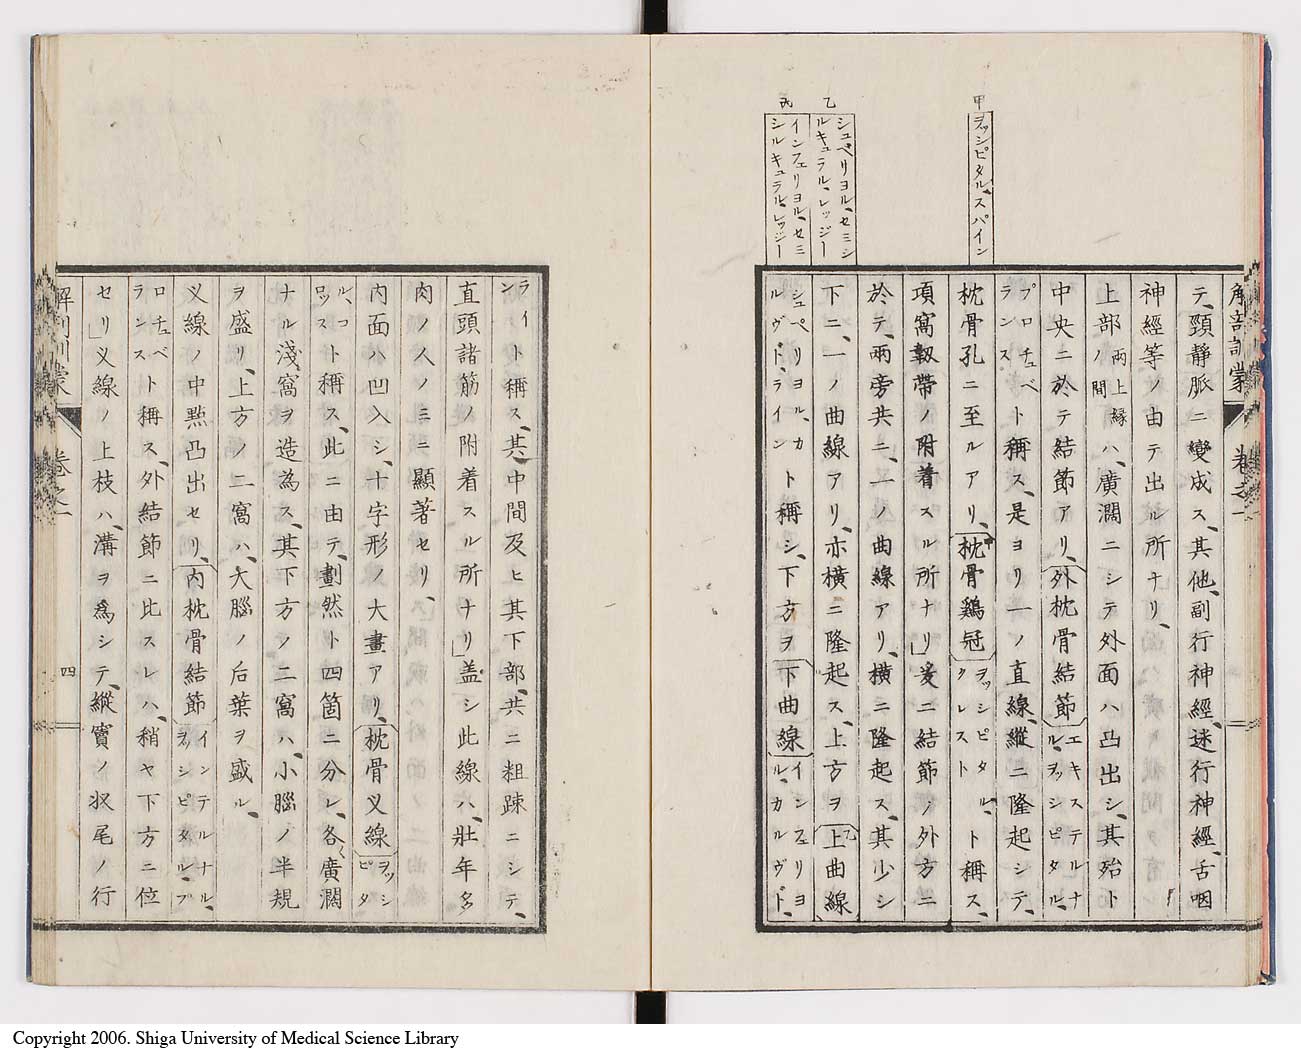 甲 ヲッシピタル、スパイン
乙 シュペリヨル、セミシ
ルキュラル、レッジー
丙 インフェリヨル、セミ
シルキュラル、レッジー
解剖訓蒙 卷之一
テ、頸静脈ニ變成ス、其他、副行神經、迷行神經、舌咽
神經等ノ由テ出ル所ナリ、
上部兩上縁ノ間ハ、廣濶ニシテ外面ハ凸出シ、其殆ト
中央ニ於テ結節アリ、外枕骨結節エキステルナル、ヲッシピタル、
プロチュベランスト稱ス、是ヨリ一ノ直線、縱ニ隆起シテ、
枕骨孔ニ至ルアリ、枕骨鷄冠ヲッシピタル、クレストト稱ス、
項窩靱帶ノ附着スル所ナリ」爰ニ結節ノ外方ニ
於テ、兩旁共ニ、又二ノ曲線アリ、横ニ隆起ス、其少シ
下ニ、一ノ曲線アリ、亦横ニ隆起ス、上方ヲ上曲線
シュペリヨル、カルヴド、ライント稱シ、下方ヲ下曲線インフェリヨル、カルヴド、
ライント稱ス、其中間及ヒ其下部、共ニ粗踈ニシテ、
直頭諸筋ノ附着スル所ナリ」盖シ此線ハ、壯年多
肉ノ人ノミニ顯著セリ、
内面ハ凹入シ、十字形ノ大畫アリ、枕骨义線ヲッシピタ
ル、コロッスト稱ス、此ニ由テ、劃然ト四箇ニ分レ、各廣濶
ナル淺窩ヲ造為ス、其下方ノ二窩ハ、小腦ノ半規
ヲ盛リ、上方ノ二窩ハ、大腦ノ后葉ヲ盛ル、
义線ノ中點凸出セリ、内枕骨結節インテルナル、ヲッシピタル、プ
ロチュベランスト稱ス、外結節ニ比スレハ、稍ヤ下方ニ位
セリ」义線ノ上枝ハ、溝ヲ爲シテ、縱竇ノ收尾ノ行
解剖訓蒙 卷之一 四
Copyright 2006. Shiga University of Medical Science Library